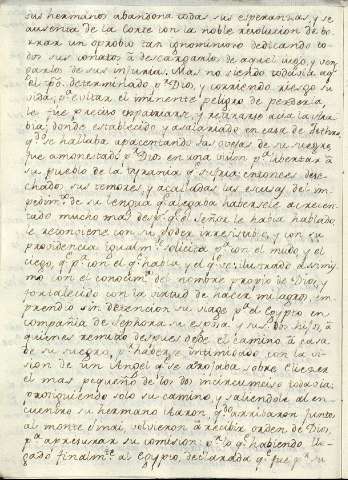 sus hermanos abandona todas sus esperanzas, y se
ausenta de la Corte con la noble revolucion de bo-
rrar un oprobio tan ignominioso dedicando to-
dos sus conatos à descargarlos de aquel iugo, y ven-
garlos de sus injurias. Mas no siendo todavia aq.l
el tpõ. determinado p.r Dios, y corriendo riesgo su
vida, p.a evitar el iminente peligro de perderla,
le fue preciso expatriarse, y retirarse à la Ara-
bia; donde establecido, y asalariado en casa de Jethro,
q.do se hallaba apacentando las ovejas de su suegro,
fue amonestado p.r Dios en una vision p.a libertar à
su pueblo de la tyrania q.e sufria; entonces dese-
chados sus temores, y acalladas las escusas del im-
pedim.to de su lengua q.e alegaba habersele acrecen-
tado mucho mas desde q.e el Señor le habia hablado
le reconviene con su poder irresistible, y con su
providencia igualm.te solicita p.a con el mudo, y el
ciego, q.e p.a con el q.e habla y el q.e ve: ilustrado asimis-
mo en el conocim.to del nombre proprio de Dios, y
fortalecido con la virtud de hacer milagros, em-
prendio sin detencion su viage p.a el Egypto en
compañia de Sephora su esposa y sus dos hijos, à
quienes remitio despues desde el camino à casa
de su suegro, p.r haberse intimidado con la vi-
sion de un Angel q.e se arrojaba sobre Eliezer
el mas pequeño de los dos incircumciso todavia:
prosiguiendo solo su camino, y saliendole al en-
cuentro su hermano Aaron, q.do arribaron juntos
al monte Sinai, volvieron à recibir orden de Dios,
p.a apresurar su comision: p.r lo q.e habiendo lle-
gado finalm.te al Egypto, declarada q.e fue p.r su